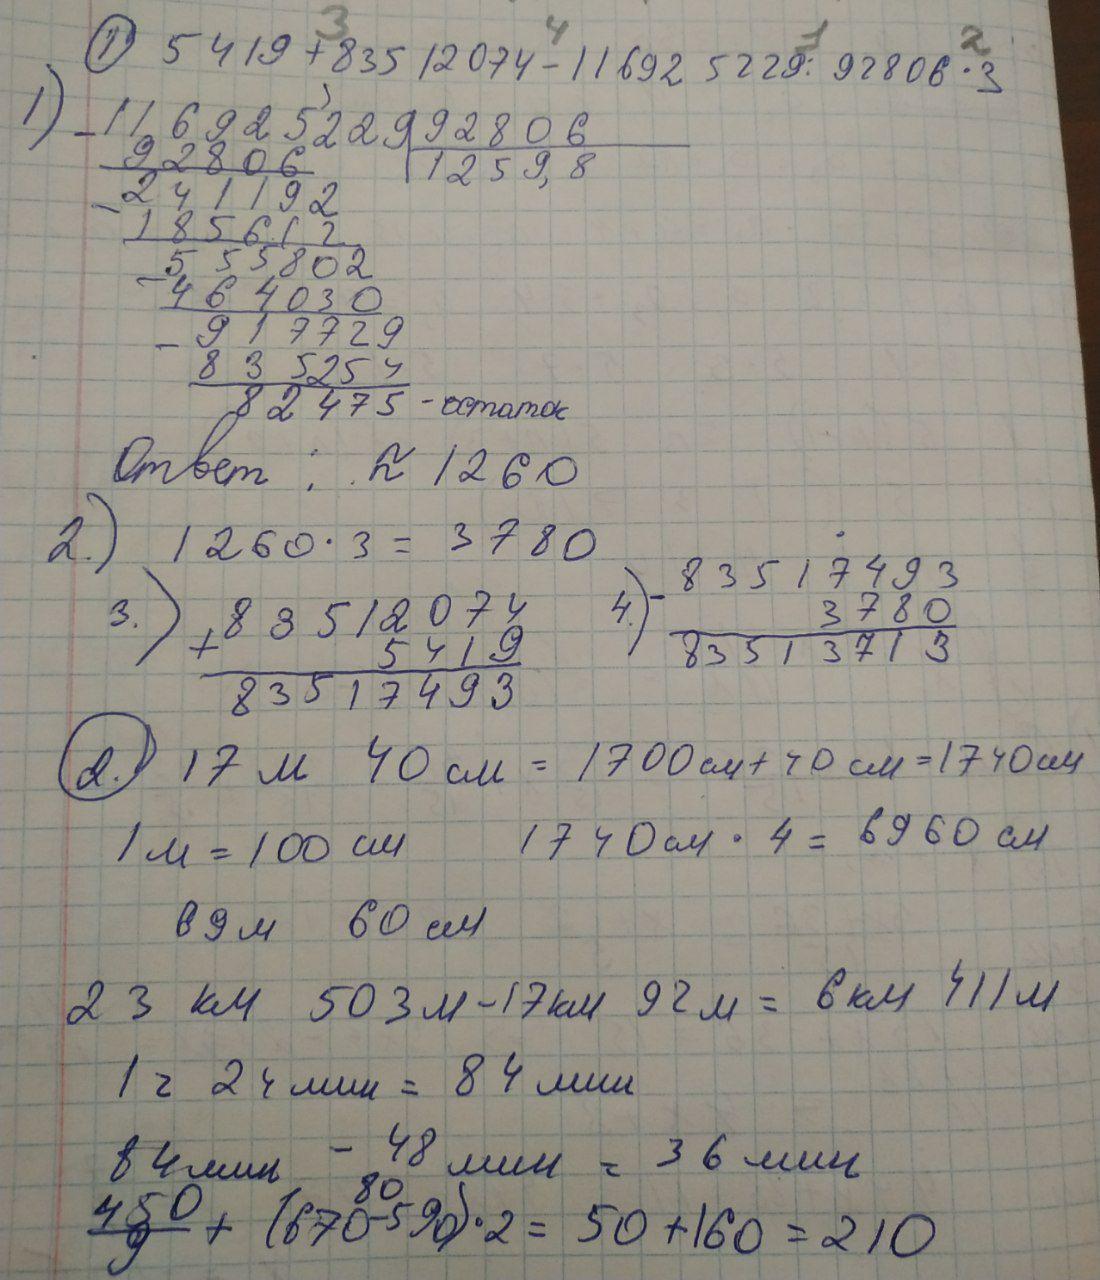 3 4 1 2
① 5419 + 83512074 - 116925229 : 92806 · 3
1) - 116925229 | 92806
92806 | 1259,8
- 241192
185612
- 555802
- 464030
- 917729
835254
82475 - остаток
Ответ : ≈ 1260
2.) 1260 · 3 = 3780
3.) + 83512074 4.) - 83517493
5419 3780
83517493 83513713
2. 17 м 40 см = 1700 см + 40 см = 1740 см
1 м = 100 см 1740 см · 4 = 6960 см
69 м 60 см
23 км 503 м - 17 км 92 м = 6 км 411 м
1 ч 24 мин = 84 мин
84 мин - 48 мин = 36 мин
80
450/9 + (670 - 590) · 2 = 50 + 160 = 210